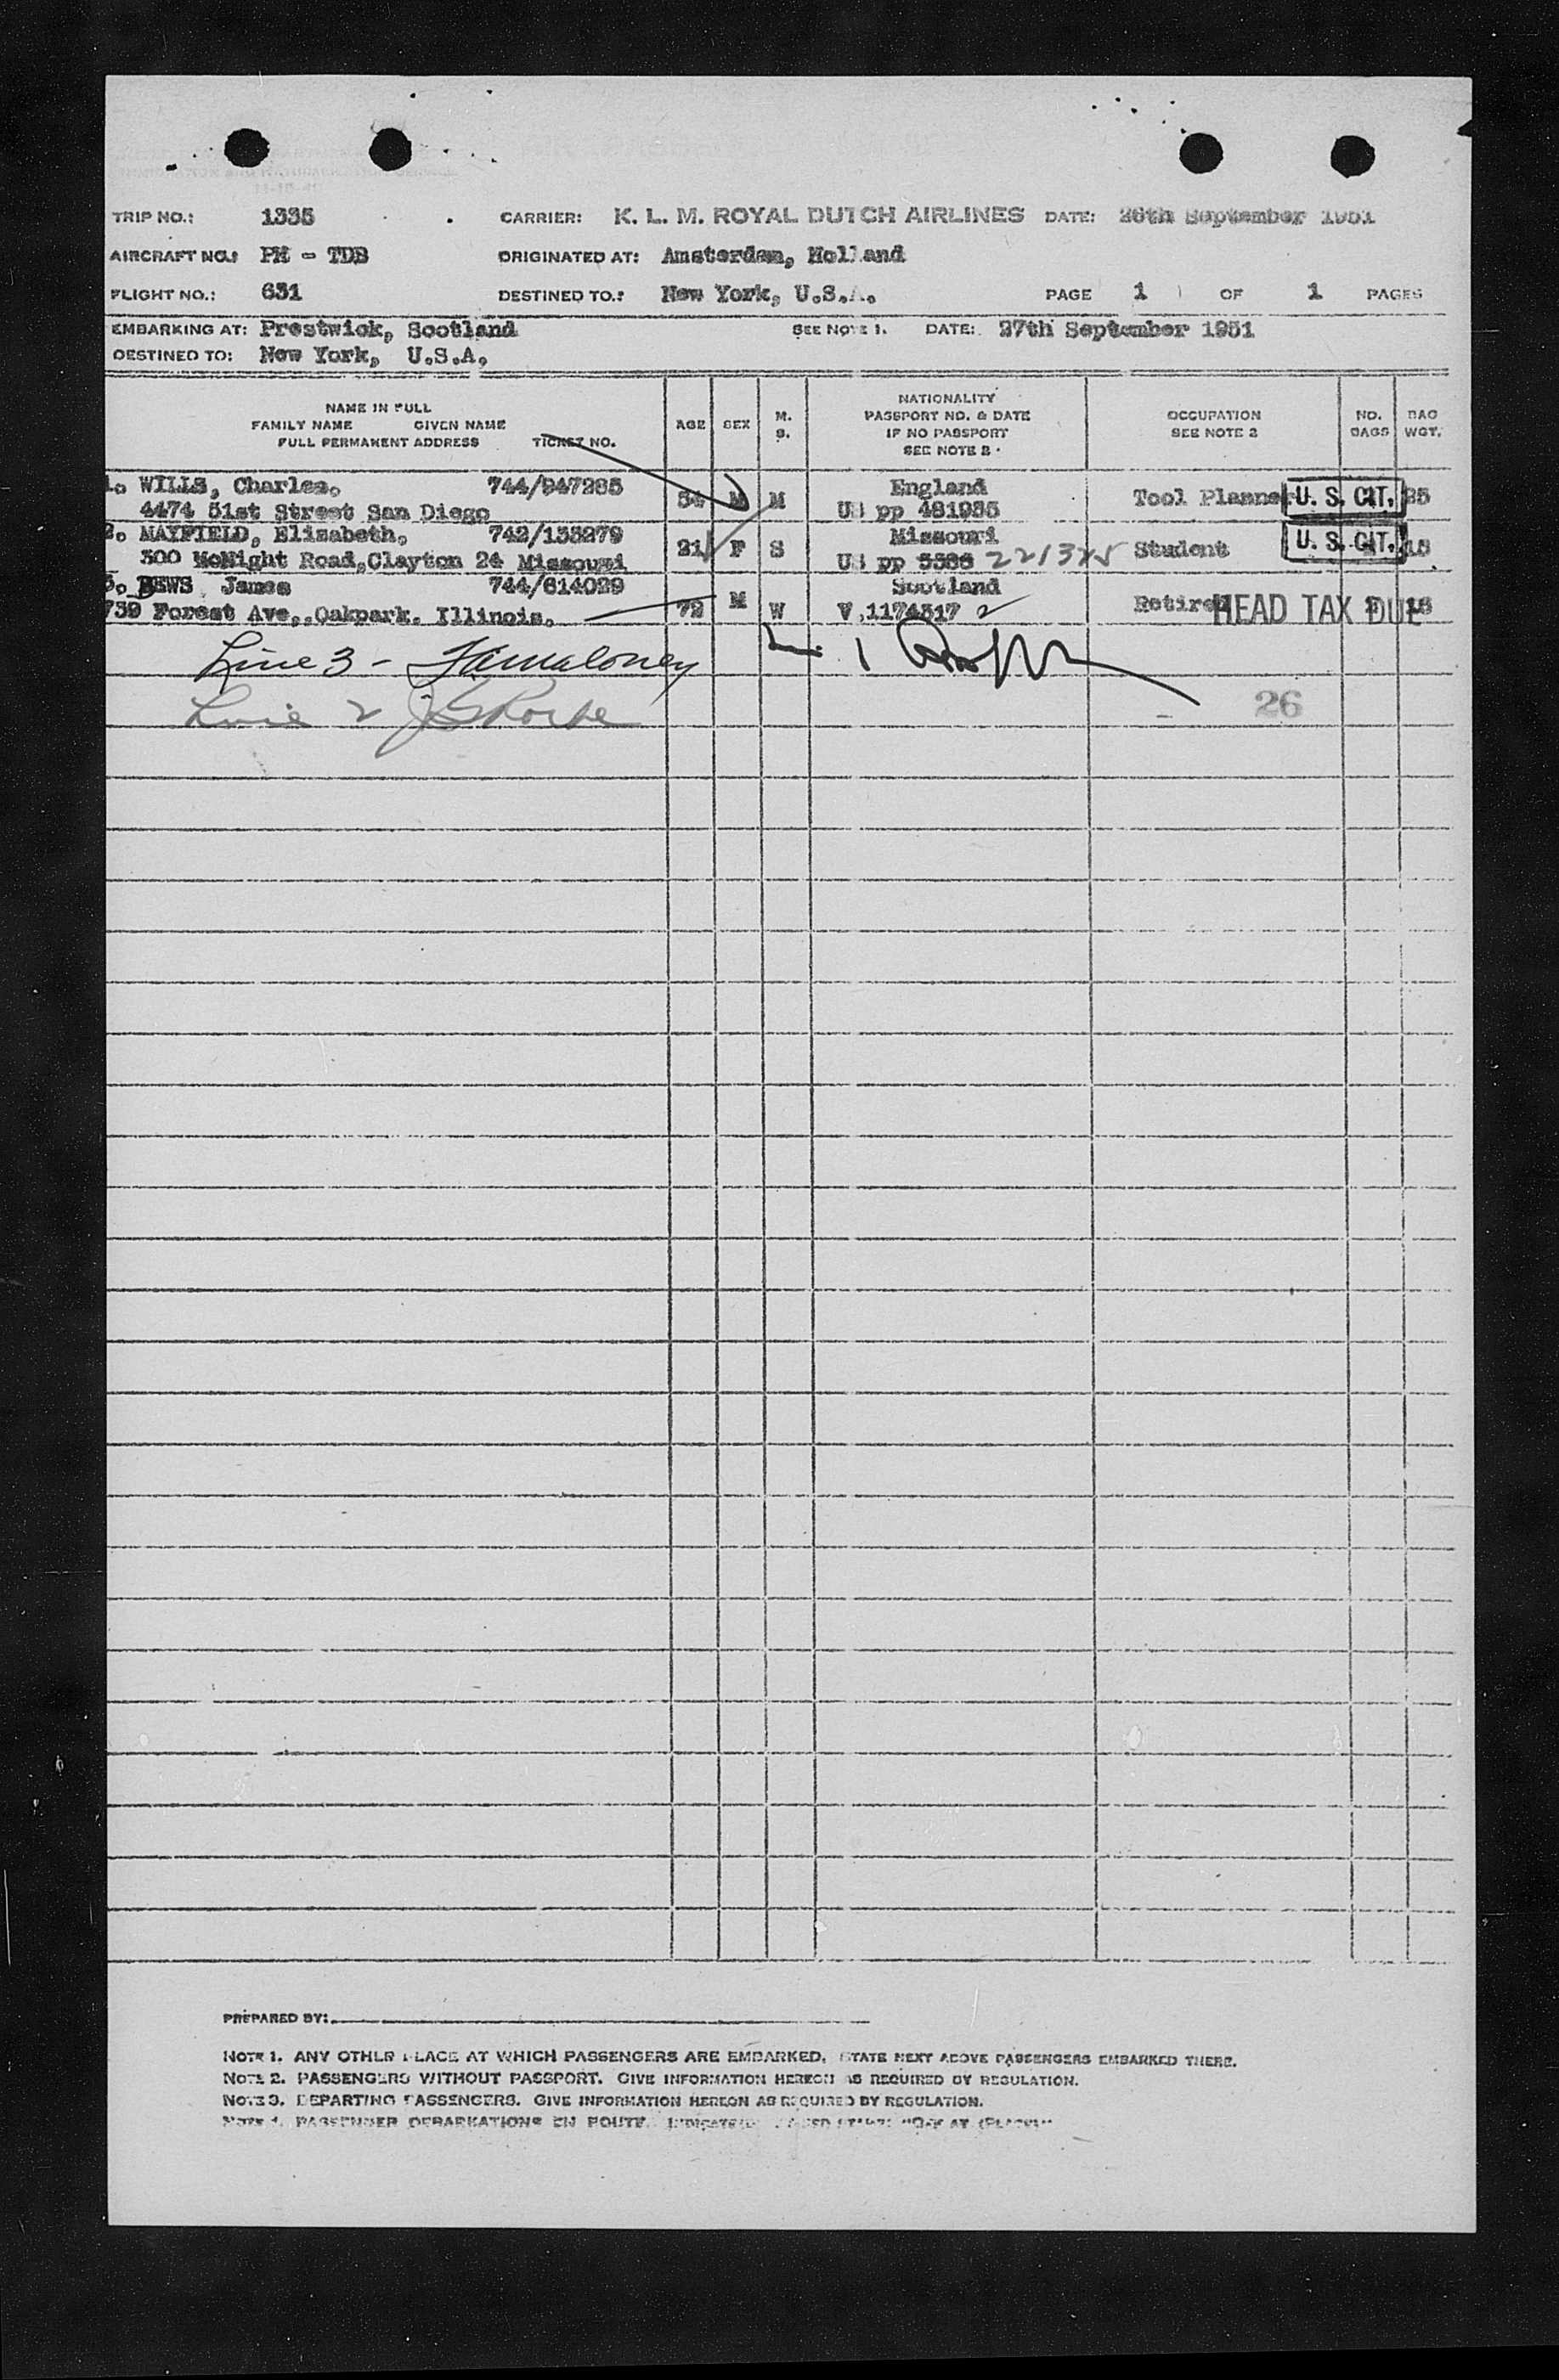 TRIP NO.: 1335 CARRIER: K. L. M. ROYAL DUTCH AIRLINES DATE: 26th September 1951
AIRCRAFT NO.: PH - TDB ORIGINATED AT: Amsterdam, Holland
FLIGHT NO.: 631 DESTINED TO.: New York, U.S.A. PAGE 1 OF 1 PAGES
EMBARKING AT: Prestwick, Scotland SEE NOTE 1. DATE: 27th September 1951
DESTINED TO: New York, U.S.A.
NAME IN FULL
FAMILY NAME GIVEN NAME
FULL PERMANENT ADDRESS TICKET NO.
AGE SEX M. S.
NATIONALITY
PASSPORT NO. & DATE
IF NO PASSPORT
SEE NOTE 2
OCCUPATION
SEE NOTE 2
NO. BAGS
BAG WGT.
1. WILLS, Charles. 744/947285 54 M M England Tool Planner U. S. CIT. 25
4474 51st Street San Diego US pp 481935
2. MAYFIELD, Elizabeth, 742/133279 21 F S Missouri Student U. S. CIT. 15
300 McNight Road, Clayton 24 Missouri US pp 221325
3. BEWS James 744/614029 72 M W Scotland Retired HEAD TAX DUE 18
739 Forest Ave,.Oakpark. Illinois. V.1174317
Line 3 -
Line 2
26
PREPARED BY:
NOTE 1. ANY OTHER PLACE AT WHICH PASSENGERS ARE EMBARKED, STATE NEXT ABOVE PASSENGERS EMBARKED THERE.
NOTE 2. PASSENGERS WITHOUT PASSPORT. GIVE INFORMATION HEREON AS REQUIRED BY REGULATION.
NOTE 3. DEPARTING PASSENGERS. GIVE INFORMATION HEREON AS REQUIRED BY REGULATION.
NOTE 4. PASSENGER DEBARKATIONS EN ROUTE.